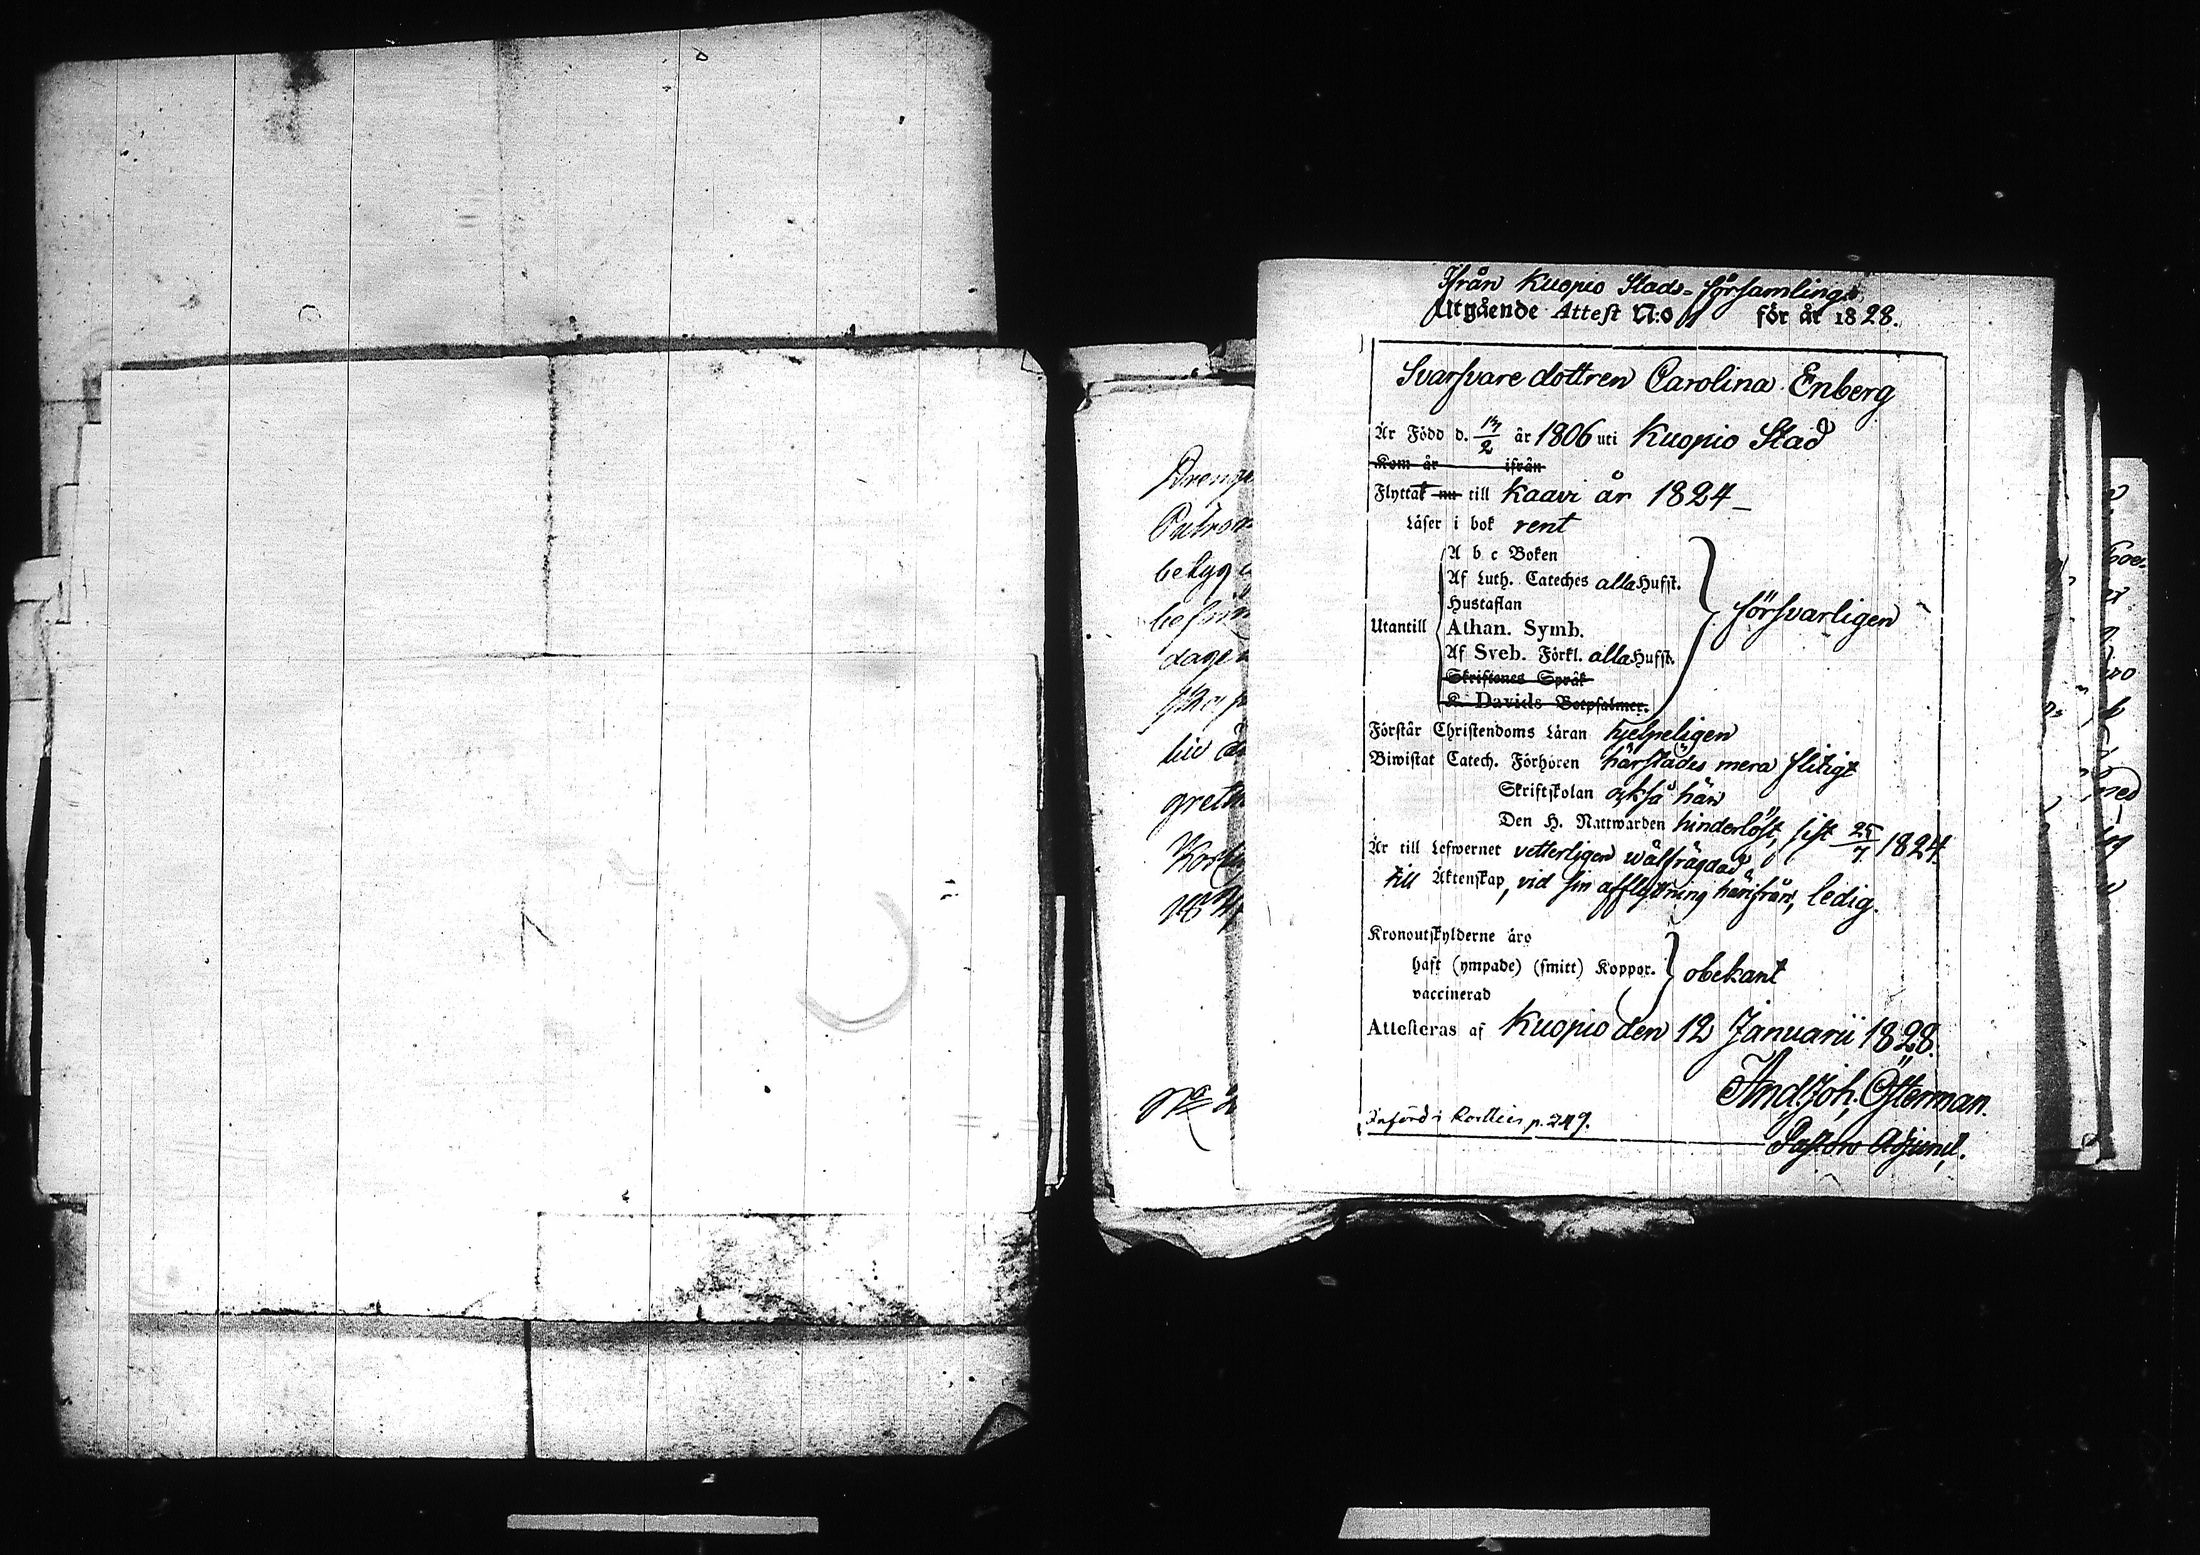 Ifrån Kuopio Stads-församling
Utgående Attest N:o för år 1828.
Svarfvare dottren Carolina Enberg
År Född d. 13/2 år 1806 uti Kuopio Stad
Kom år ifrån
Flyttat nu till Kaavi år 1824
Låser i bok rent
A b c Boken
Af Luth. Cateches alla Hufst.
Hustaflan
Utantill Athan. Symb. försvarligen
Af Sveb. Förkl. alla Hufst.
Skriftenes Språk
K. Davids Botpsalmer.
Förstår Christendoms Låran hjelpeligen
Biwistat Catech. Förhören härstädes mera flitigt
Skriftskolan också här
Den H. Nattwarden hinderlöst, sist 25/7 1824.
År till Lefwernet vetterligen wälfrägdad
till Äktenskap, vid sin afflyttning härifrån, ledig.
Kronoutskylderne åro
haft (ympade) (smitt) Koppor. obekant
vaccinerad
Attesteras af Kuopio den 12 Januarii 1828.
And. Joh. Österman.
Införd i p. 249.
Pastors Adjunct.
Drenge
betyg
dage
liv
No